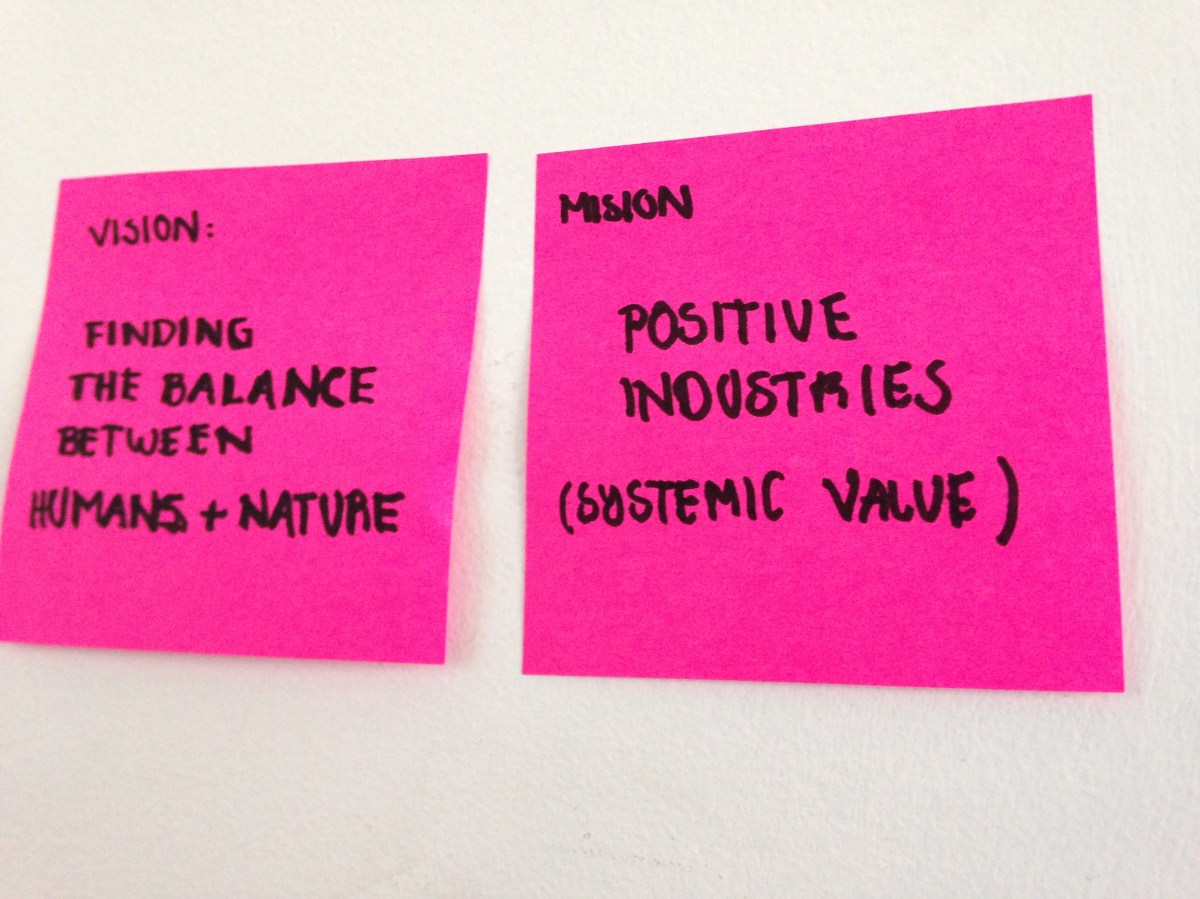 VISION:
FINDING
THE BALANCE
BETWEEN
HUMANS + NATURE
MISION
POSITIVE
INDUSTRIES
(SYSTEMIC VALUE)